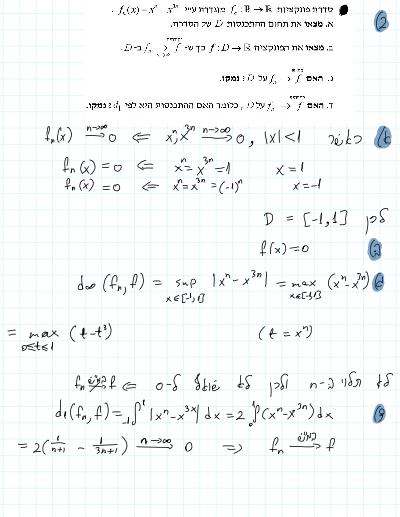 סדרת פונקציות f_n : ℝ → ℝ מוגדרת ע״י f_n(x) = x^n - x^{3n}.
א. מצאו את תחום ההתכנסות D של הסדרה.
ב. מצאו את הפונקציה f : D → ℝ כך ש- f_n → f ב-D.
ג. האם f_n → f על D? נמקו.
ד. האם f_n → f על D, כלומר האם ההתכנסות היא לפי d_1? נמקו.
② 
א) כאשר |x|<1 , x^n, x^{3n} →^{n→∞} 0 ⇐ f_n(x) →^{n→∞} 0
x=1 x^n = x^{3n} = 1 ⇐ f_n(x) = 0
x=-1 x^n = x^{3n} = (-1)^n ⇐ f_n(x) = 0
לכן D = [-1,1]
ב) f(x)=0
ג) d_∞(f_n, f) = sup_{x∈[-1,1]} |x^n - x^{3n}| = max_{x∈[-1,1]} (x^n - x^{3n})
= max_{0≤t≤1} (t - t^3) (t = x^n)
לא תלוי ב-n ולכן לא שואף ל-0 ⇐ f_n ↛ f
ד) d_1(f_n, f) = ∫_{-1}^{1} |x^n - x^{3x}| dx = 2∫_0^1 (x^n - x^{3n}) dx
= 2(1/(n+1) - 1/(3n+1)) →^{n→∞} 0 ⇒ f_n → f